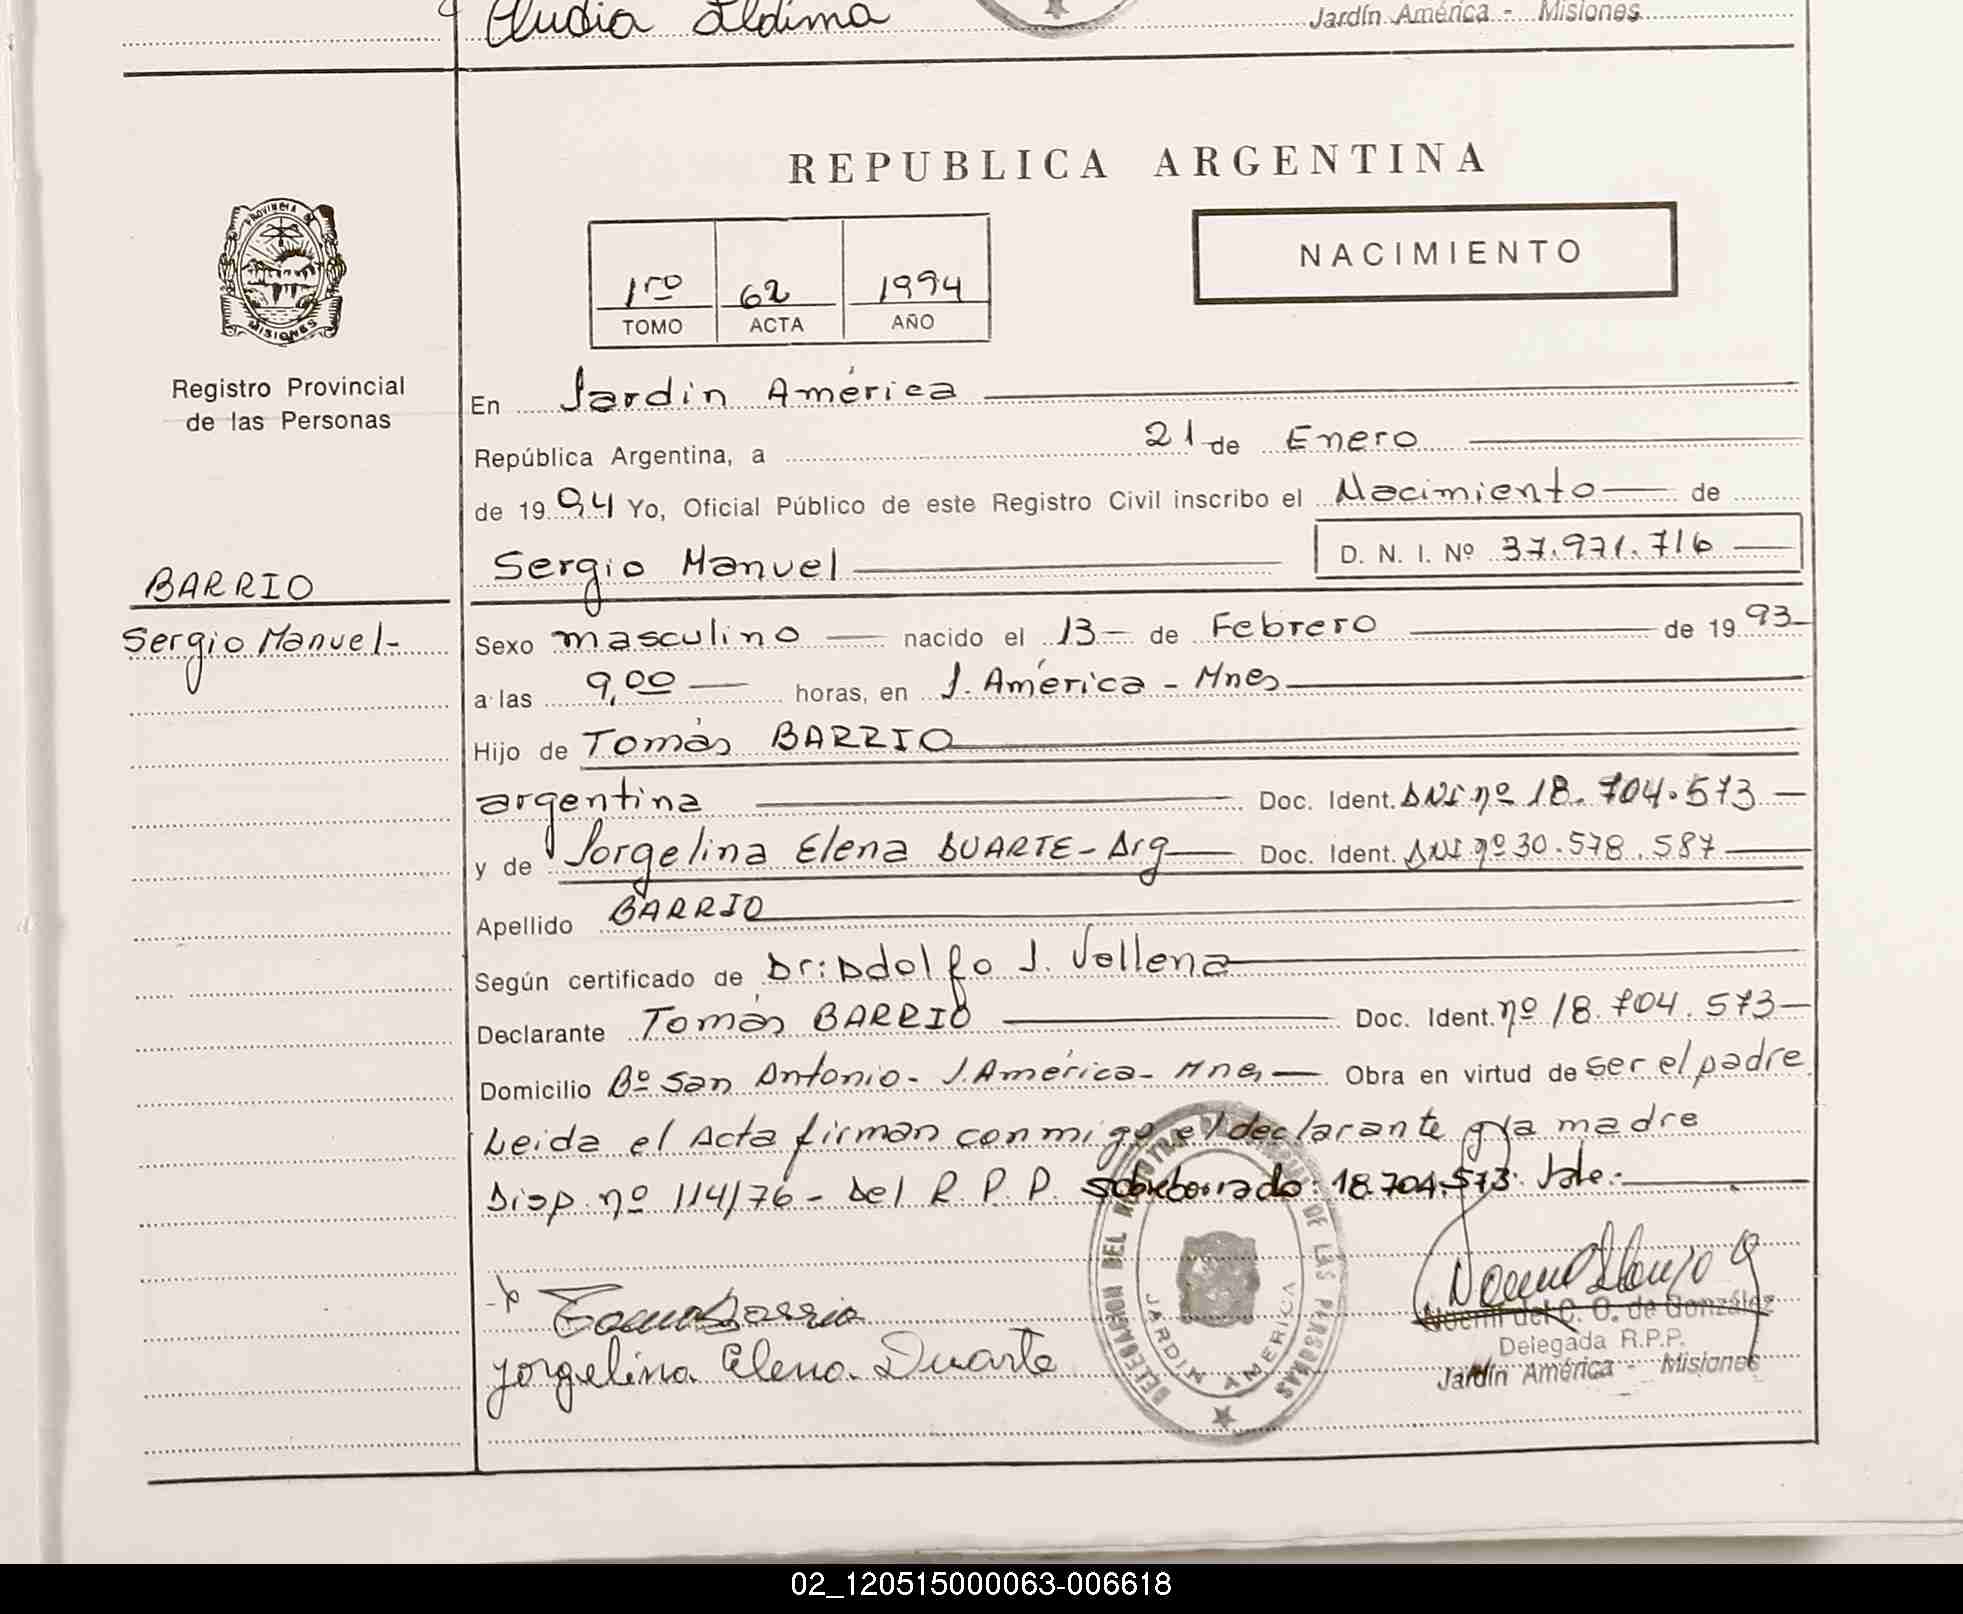 Claudia Aldima
Jardín América - Misiones
REPUBLICA ARGENTINA
PROVINCIA DE
MISIONES
Registro Provincial
de las Personas
1ro 62 1994
TOMO ACTA AÑO
NACIMIENTO
En Jardin América
República Argentina, a 21 de Enero
de 1994 Yo, Oficial Público de este Registro Civil inscribo el Nacimiento de
Sergio Manuel D. N. I. Nº 37.971.716
BARRIO
Sergio Manuel-
Sexo masculino nacido el 13 de Febrero de 1993
a las 9,00 horas, en J. América - Mnes
Hijo de Tomás BARRIO
argentina Doc. Ident. DNI nº 18.704.573
y de Jorgelina Elena DUARTE - Arg Doc. Ident. DNI nº 30.578.587
Apellido BARRIO
Según certificado de Dr: Adolfo J. Vellena
Declarante Tomás BARRIO Doc. Ident. nº 18.704.573
Domicilio Bº San Antonio - J. América - Mnes Obra en virtud de ser el padre
Leida el Acta firman conmigo el declarante y la madre
Disp. nº 114/76 - Del R.P.P. sobreborrado: 18.704.573. Vale.-
Tomas Barrio
Jorgelina Elena Duarte
DELEGACION DEL REGISTRO PROVINCIAL DE LAS PERSONAS
JARDIN AMERICA
Noemí del C. O. de González
Delegada R.P.P.
Jardín América - Misiones
02_120515000063-006618